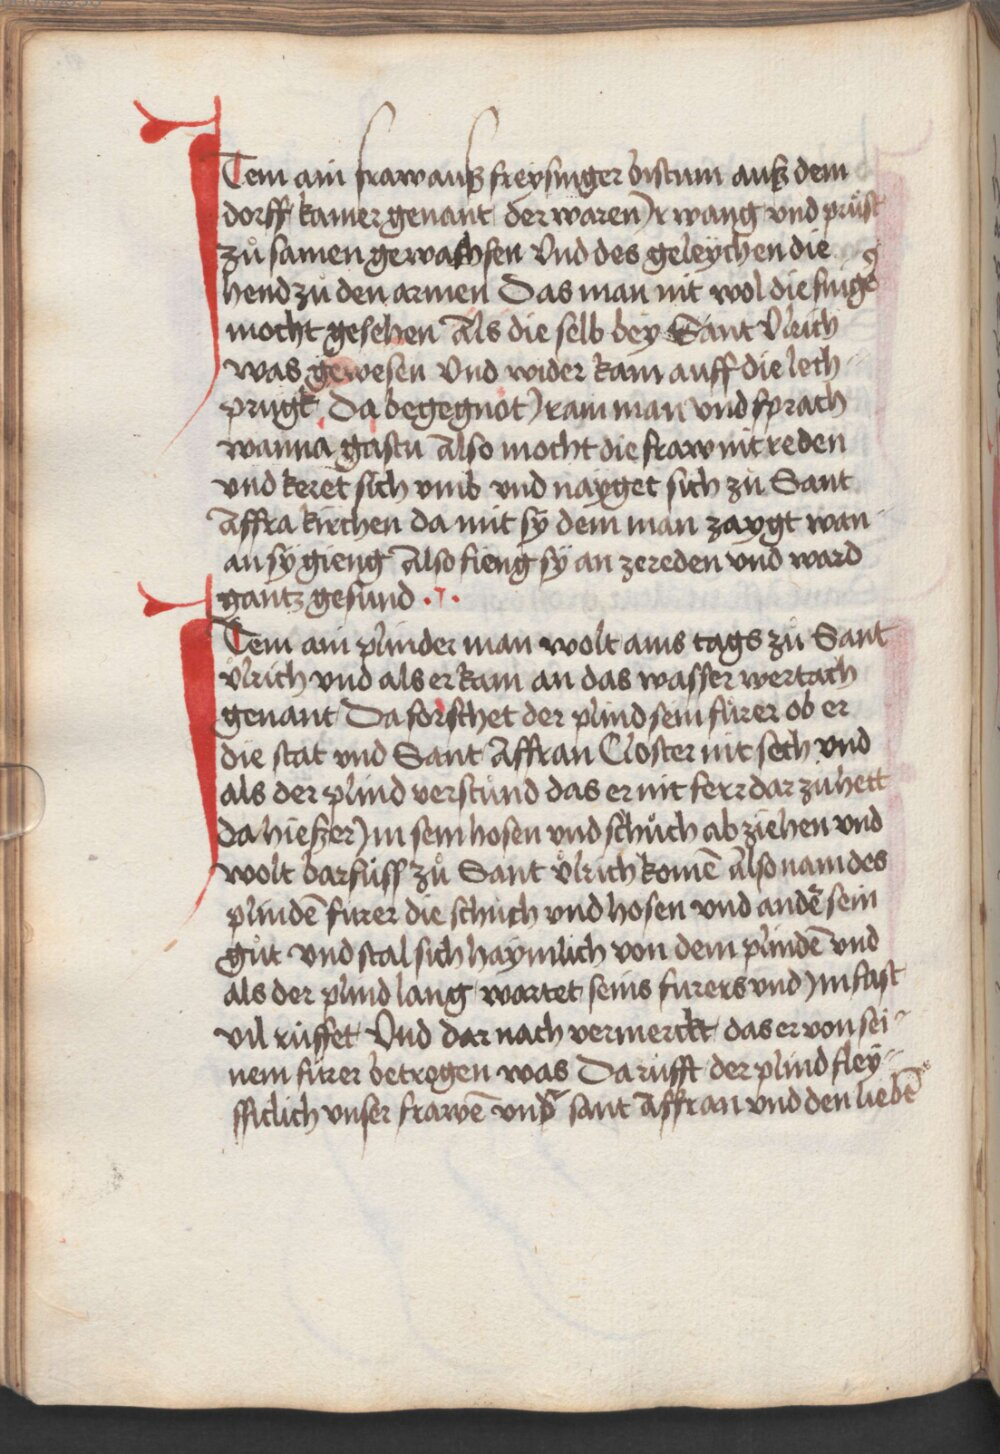 Item ain fraw auß freysinger bistum auß dem
dorff kamer genant der waren ir wang vnd prüst
zů samen gewachsen Vnd des geleychen die
hend zů den armen Das man nit wol die finger
mocht gesehen Als die selb bey Sant Vlrich
was gewesen Vnd wider kam auff die lech
prugk Da begegnot ir ain man vnd sprach
wanna gastu Also mocht die fraw nit reden
vnd keret sich vmb vnd nayget sich zů Sant
Affra kirchen da mit sy dem man zaygt wan
an sy gieng Also fieng sy an zereden vnd ward
gantz gesund .7.
Item ain plinder man wolt ains tags zů Sant
vͦlrich vnd als er kam an das wasser wertach
genant Da forschet der plind sein fürer ob er
die stat vnd Sant Affran Closter nit sech vnd
als der plind verstůnd das er nit ferr dar zů hett
da hieß er im sein hosen vnd schůch ab ziehen vnd
wolt barfůß zů Sant vͦlrich komē Also nam des
plindē fürer die schůch vnd hosen vnd andͤ sein
gůt vnd stal sich haymlich von dem plindē vnd
als der plind lang wartet seins fürers vnd im fast
vil růffet Vnd dar nach vermerckt das er von sei-
nem fürer betrogen was Da růfft der plind fley-
ssiclich vnser frawē vnd sant Affran vnd den liebē